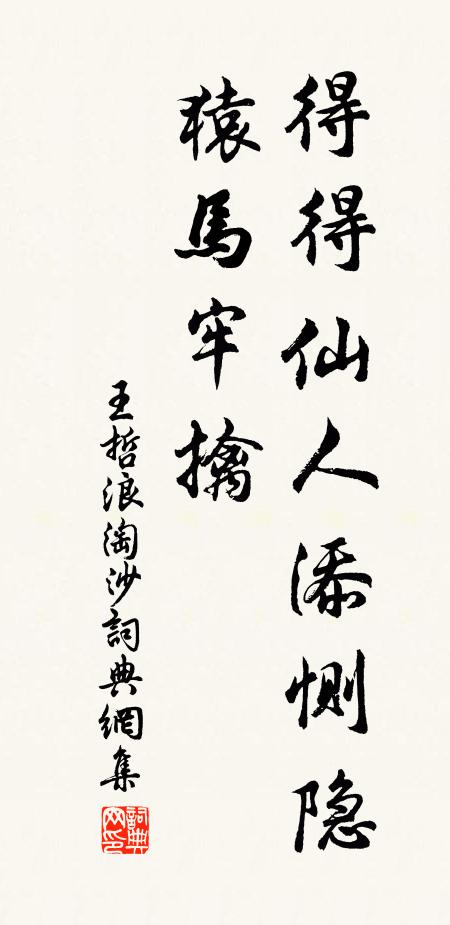 得得仙人添恻隐
猿馬牢擒
王哲浪淘沙詞典網集
詞典網印